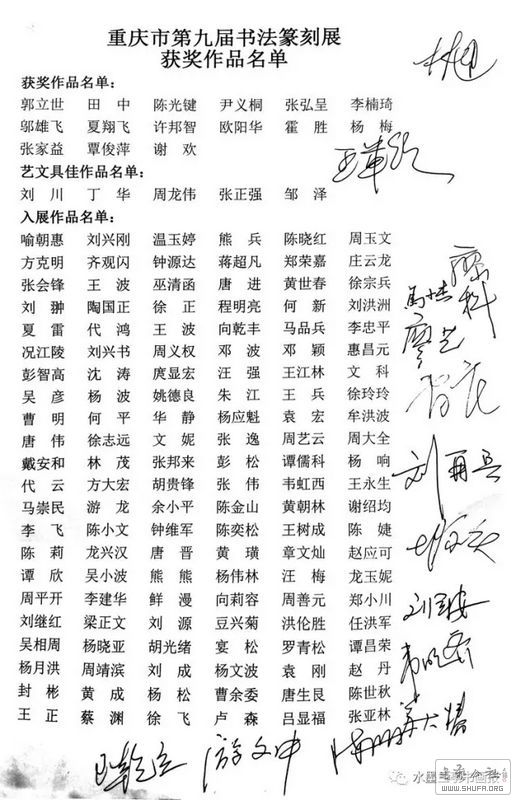 重庆市第九届书法篆刻展
获奖作品名单
获奖作品名单：
郭立世 田 中 陈光键 尹义桐 张弘呈 李楠琦
邬雄飞 夏翔飞 许邦智 欧阳华 霍 胜 杨 梅
张家益 覃俊萍 谢 欢
艺文具佳作品名单：
刘 川 丁 华 周龙伟 张正强 邹 泽
入展作品名单：
喻朝惠 刘兴刚 温玉婷 熊 兵 陈晓红 周玉文
方克明 齐观闪 钟源达 蒋超凡 郑荣嘉 庄云龙
张会锋 王 波 巫清函 唐 进 黄世春 徐宗兵
刘 翀 陶国正 徐 正 程明亮 何 新 刘洪洲
夏 雷 代 鸿 王 波 向乾丰 马品兵 李忠平
况江陵 刘兴书 周义权 邓 波 邓 颖 惠昌元
彭智高 沈 涛 庹显宏 汪 强 王江林 文 科
吴 彦 杨 波 姚德良 朱 江 王 兵 徐玲玲
曹 明 何 平 华 静 杨应魁 袁 宏 牟洪波
唐 伟 徐志远 文 妮 张 逸 周艺云 周大全
戴安和 林 茂 张邦来 彭 松 谭儒科 杨 响
代 云 方大宏 胡贵锋 张 伟 韦虹西 王永生
马崇民 游 龙 余小平 陈金山 黄朝林 谢绍均
李 飞 陈小文 钟维军 陈奕松 王树成 陈 婕
陈 莉 龙兴汉 唐 晋 黄 璜 章文灿 赵应可
谭 欣 吴小波 熊 熊 杨伟林 汪 梅 龙玉妮
周平开 李建华 鲜 漫 向莉容 周善元 郑小川
刘继红 梁正文 刘 源 豆兴菊 洪伦胜 任洪军
吴相周 杨晓亚 胡光绪 宴 松 罗青松 谭昌荣
杨月洪 周靖滨 刘 成 杨文波 袁 刚 赵 丹
封 彬 黄 成 杨 松 曹余委 唐生艮 陈世秋
王 正 蔡 渊 徐 飞 卢 森 吕显福 张亚林
廖科
廖艺
游文中
书艺公社
WWW.SHUFA.ORG